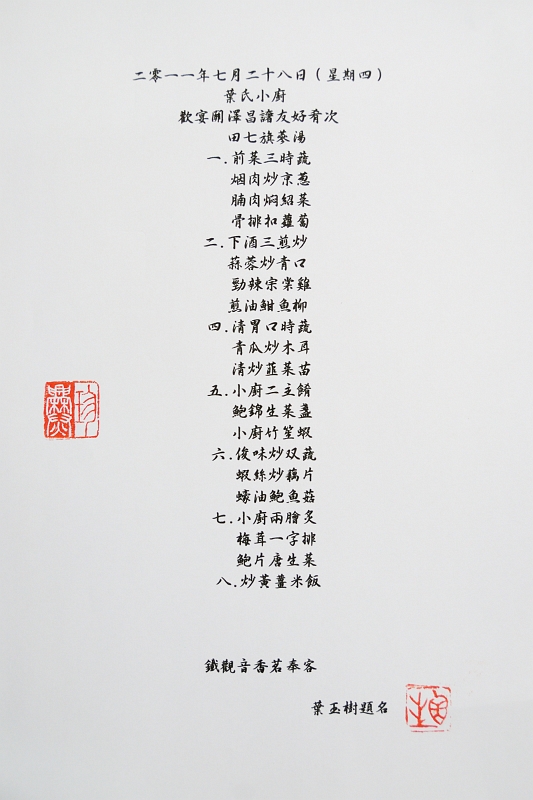 二零一一年七月二十八日（星期四）
葉氏小廚
歡宴關澤昌諸友好肴次
田七旗蔘湯
一.前菜三時蔬
烟肉炒京葱
腩肉焖紹菜
骨排扣蘿蔔
二.下酒三煎炒
蒜蓉炒青口
勁辣宗棠雞
煎油鉗魚柳
四.清胃口時蔬
青瓜炒木耳
清炒韮菜苗
五.小廚二主餚
鮑錦生菜盞
小廚竹笙蝦
六.俊味炒双蔬
蝦絲炒藕片
蠔油鮑魚菇
七.小廚兩膾炙
梅茸一字排
鮑片唐生菜
八.炒黃薑米飯
鐵觀音香茗奉客
葉玉樹題名